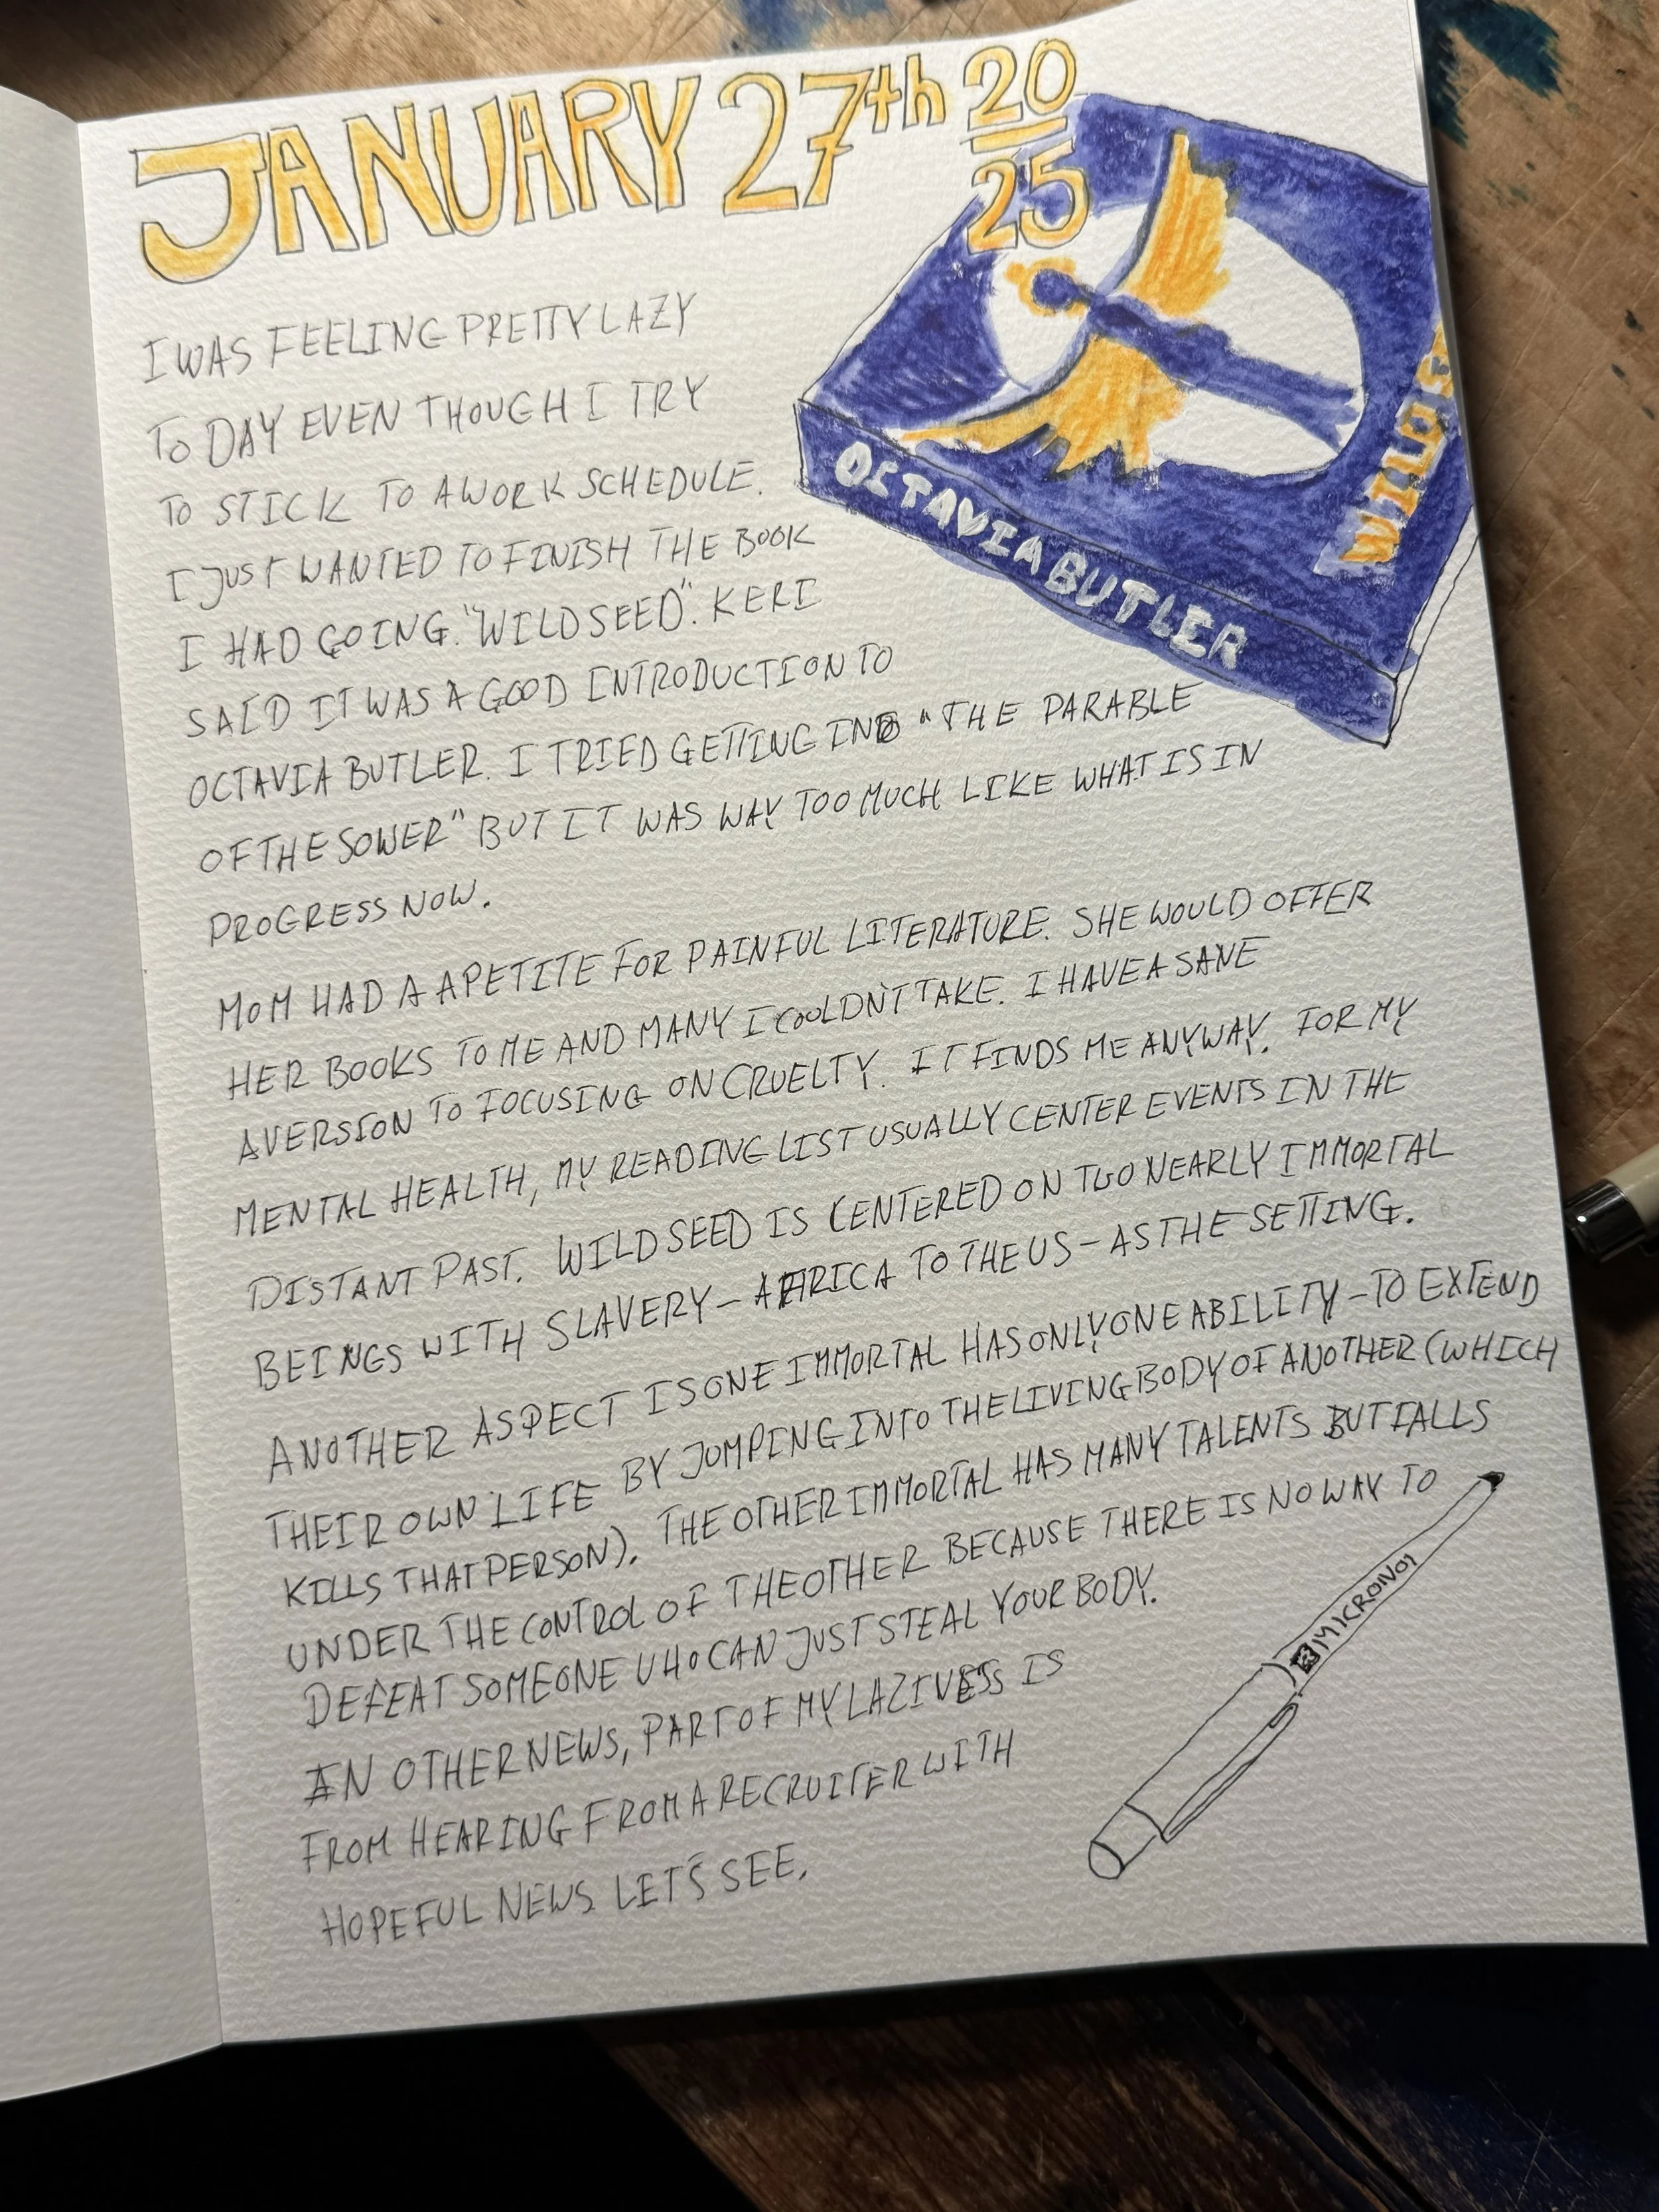 JANUARY 27th 20
25
I WAS FEELING PRETTY LAZY
TO DAY EVEN THOUGH I TRY
TO STICK TO A WORK SCHEDULE.
I JUST WANTED TO FINISH THE BOOK
I HAD GOING. "WILD SEED". KERI
SAID IT WAS A GOOD INTRODUCTION TO
OCTAVIA BUTLER. I TRIED GETTING INTO "THE PARABLE
OF THE SOWER" BUT IT WAS WAY TOO MUCH LIKE WHAT IS IN
PROGRESS NOW.
MOM HAD A APETITE FOR PAINFUL LITERATURE. SHE WOULD OFFER
HER BOOKS TO ME AND MANY I COULDN'T TAKE. I HAVE A SANE
AVERSION TO FOCUSING ON CRUELTY. IT FINDS ME ANYWAY. FOR MY
MENTAL HEALTH, MY READING LIST USUALLY CENTER EVENTS IN THE
DISTANT PAST. WILD SEED IS CENTERED ON TWO NEARLY IMMORTAL
BEINGS WITH SLAVERY - AFRICA TO THE US - AS THE SETTING.
ANOTHER ASPECT IS ONE IMMORTAL HAS ONLY ONE ABILITY - TO EXTEND
THEIR OWN LIFE BY JUMPING INTO THE LIVING BODY OF ANOTHER (WHICH
KILLS THAT PERSON). THE OTHER IMMORTAL HAS MANY TALENTS BUT FALLS
UNDER THE CONTROL OF THE OTHER BECAUSE THERE IS NO WAY TO
DEFEAT SOMEONE WHO CAN JUST STEAL YOUR BODY.
IN OTHER NEWS, PART OF MY LAZINESS IS
FROM HEARING FROM A RECRUITER WITH
HOPEFUL NEWS. LET'S SEE.
OCTAVIA BUTLER
WILD SE
MICRON 01